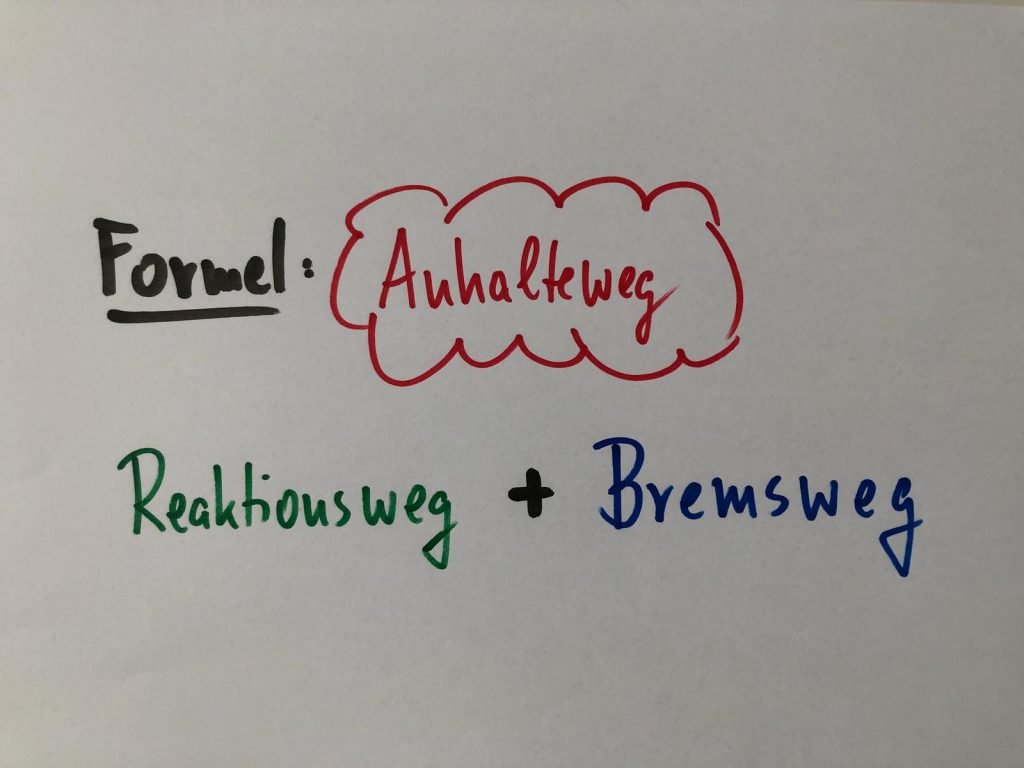 Formel: Anhalteweg
Reaktionsweg + Bremsweg